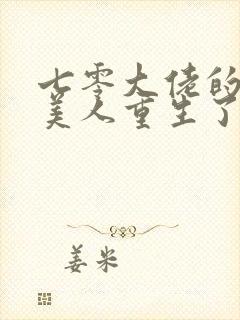 七零大佬的
美人重生了
姜米